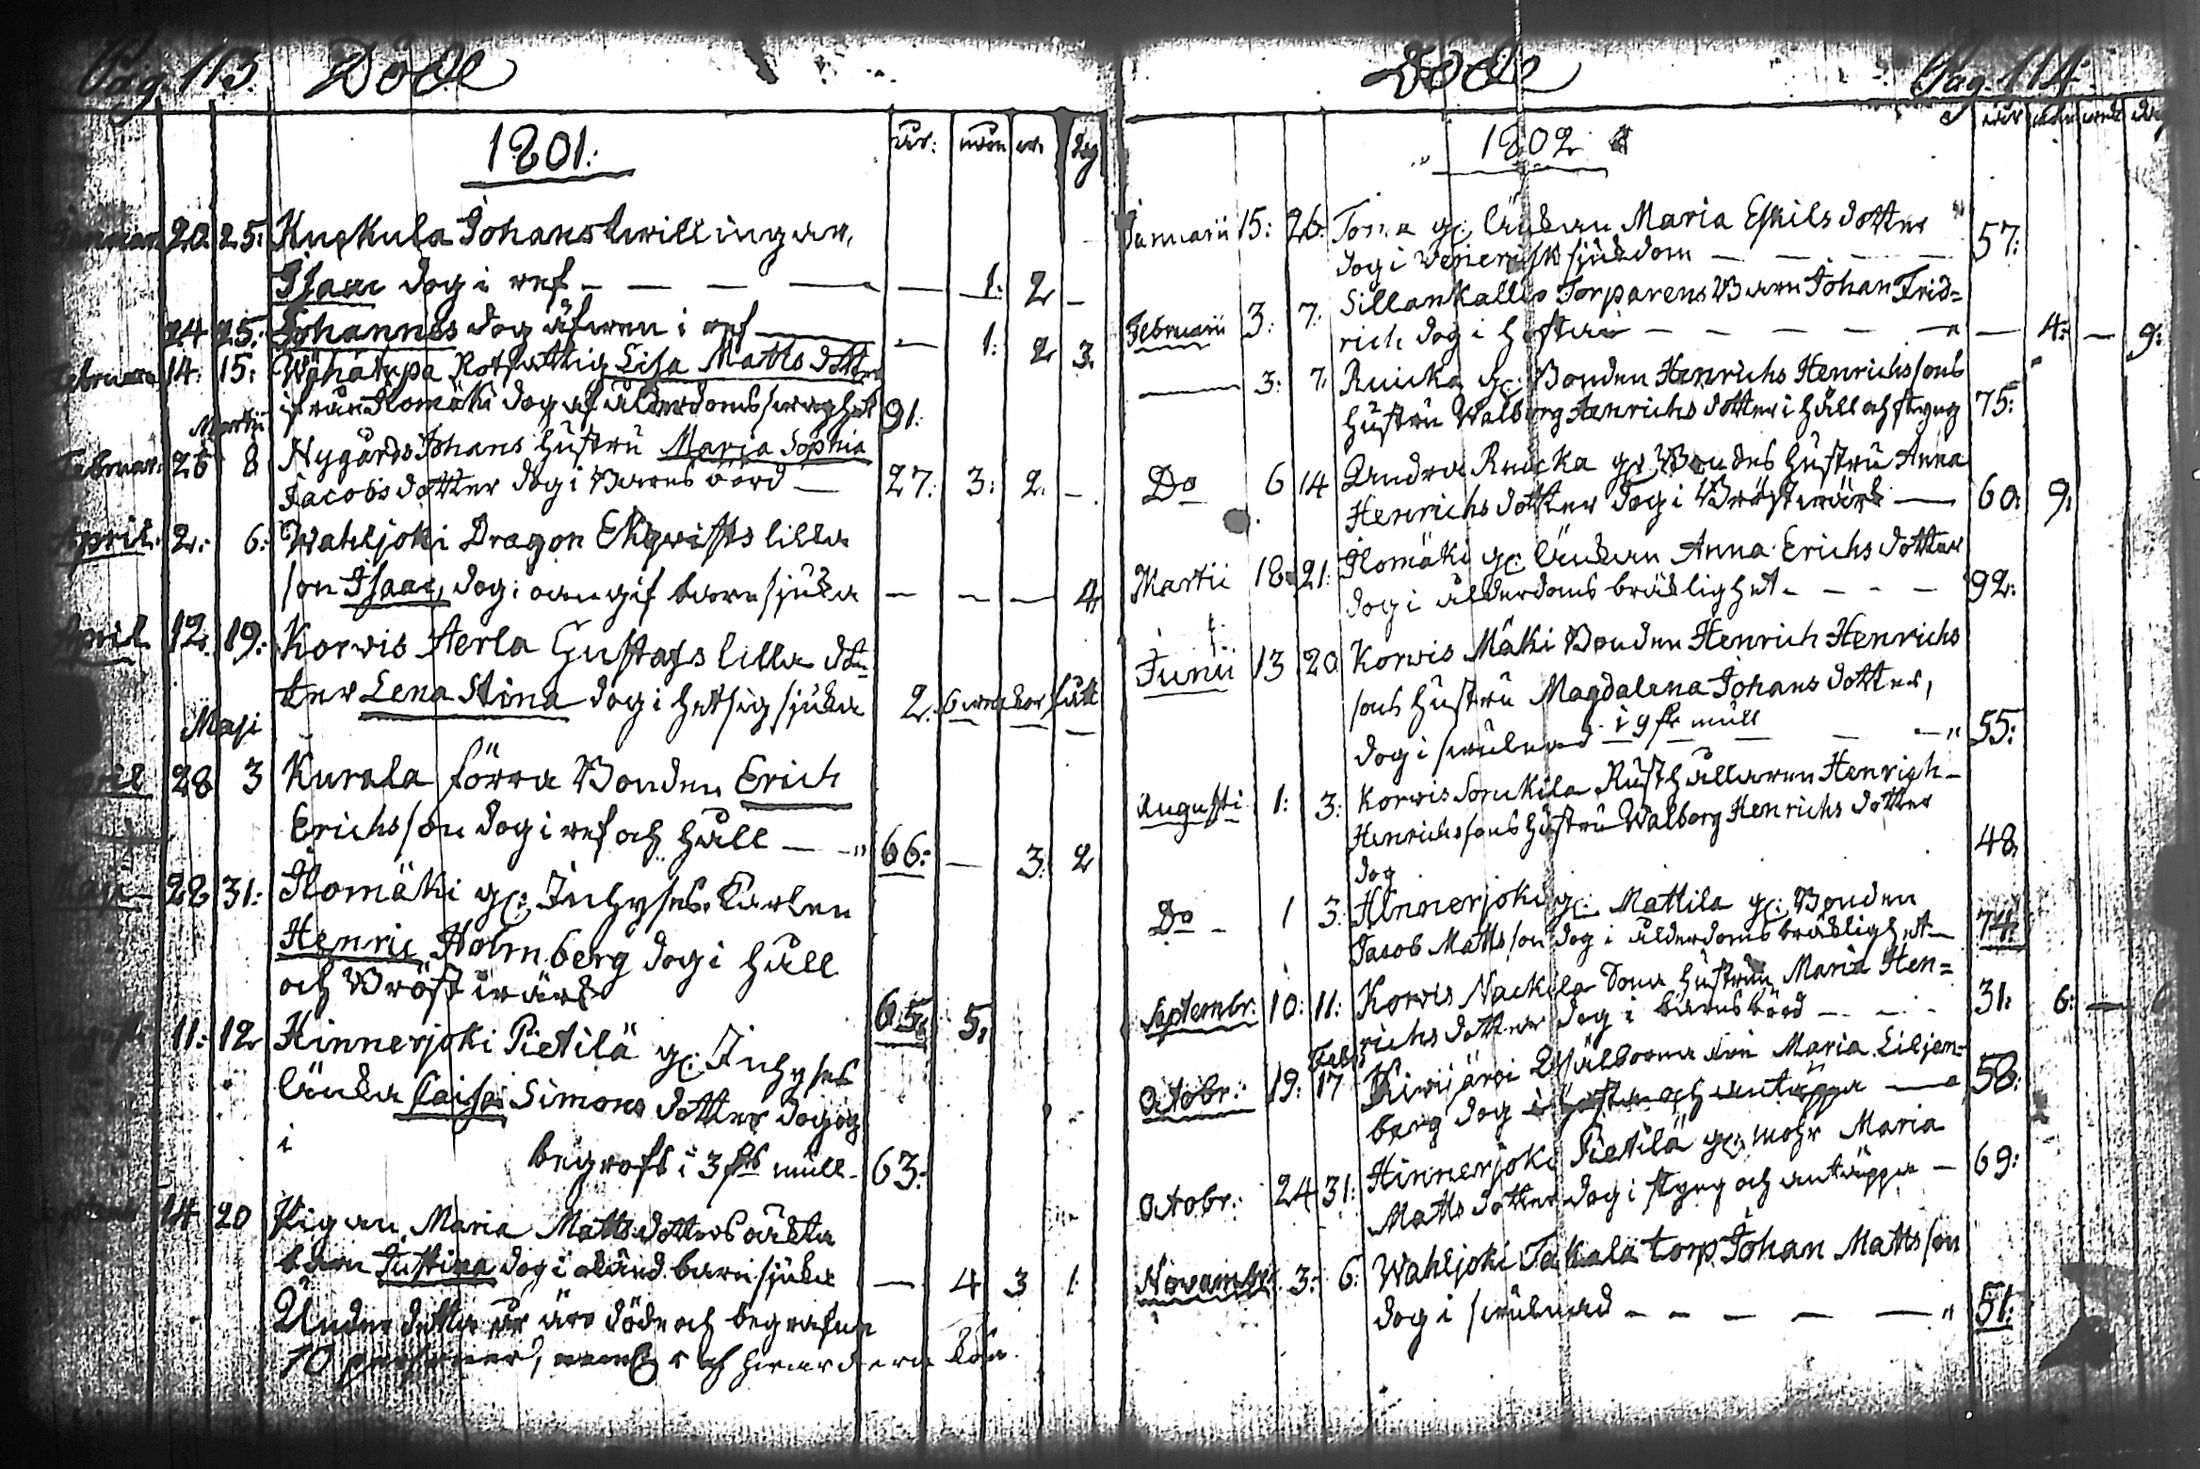 Pag. 113. Döde
1801.
år: mån w. dag
Januari 20 25. Kuckula Johans twillingar,
Isaac dog i ref — — — — — 1: 2 —
24 25. Johannes dog äfwen i ref — — 1: 2 3.
Februari 14: 15: Rotfattig Lisa Matts dotter
ifrån Ilomäki dog af ålderdoms swaghet 91.
Martii
Februar: 26 8 Nygårds Johans hustru Maria Sophia
Jacobs dotter dog i Barns börd — 27: 3: 2. —
April. 2. 6: Wahljoki Dragon Ekqwists lilla
son Isaac, dog i oangif barnsjuka — — — 4
April 12. 19: Korvis Aerla Gustafs lilla dot-
ter Lena Stina dog i hetsig sjuka 2. 6 weckor
Maji
April 28 3 Kurala förra Bonden Erich
Erichsson dog i ref och håll — 66: — 3. 2
Maji 28 31: Ilomäki gl: Inhyses Karlen
Henric Holmberg dog i håll
och Bröst wärk 65. 5.
11: 12 Hinnerjoki Pietilä gl: Inhyses
änka Caisa Simons dotter dog og
i
begrofs i 3 fls mull. 63:
14 20 Pigan Maria Matts dotters oäkta
barn Justina dog i okänd barnsjuka — 4 3 1.
Under detta år äro döde och begrafne
10 personer, neml. 5 af hwardera kön.
Döde Pag. 114.
1802
Januarii 15: 26. gl: änkan Maria Eskils dotter 57:
dog i Venerisk sjukdom — — — —
Februarii 3: 7: Sillankallio Torparens Barn Johan Frid=
rich dog i hosta — — — — — — 4: — 9:
— 3: 7. Ruicka gl: Bonden Henrichs Henrichssons
hustru Walborg Henrichs dotter i håll och styng 75:
Do 6 14 Andra Ruicka gl: Bondes hustru Anna
Henrichs dotter dog i Bröstwärk — 60. 9.
Martii 18 21: Ilomäki gl: änkan Anna Erichs dotter
dog i ålderdoms bräcklighet — — — 92:
Junii 13 20 Korvis Mäki Bonden Henrich Henrichs
sons hustru Magdalena Johans dotter,
dog i swulnad i 9 fs mull — — 55:
Augusti 1: 3: Korvis Sorckila Rusthållaren Henrich
Henrichssons hustru Walborg Henrichs dotter 48.
dog
Do — 1 3: Hinnerjoki gl: Mattila gl: Bonden
Jacob Mattsson dog i ålderdoms bräcklighet — 74.
Septembr: 10: 11: Korvis Nackila Sons hustrun Maria Hen=
richs dotter dog i barnsbörd — — 31: 6: —
Octobr: 19: 17 Kirijärvi Maria Liljen=
berg dog i hosta och antäppa — 58:
Octobr: 24 31: Hinnerjoki Pietilä gl: mohr Maria
Matts dotter dog i styng och antäppa — 69:
Novembr: 3: 6: Wahljoki Takala torp. Johan Mattsson
dog i swulnad — — — — — 51: